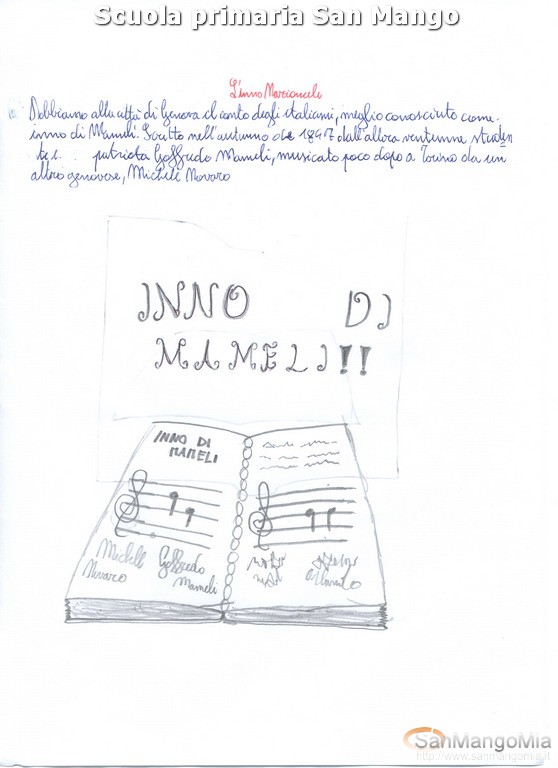 Scuola primaria San Mango
L'inno Nazionale
Dobbiamo alla città di Genova il canto degli italiani, meglio conosciuto come
inno di Mameli. Scritto nell'autunno del 1847 dall'allora ventenne studen
te e patriota Goffredo Mameli, musicato poco dopo a Torino da un
altro genovese, Michele Novaro
INNO DI
MAMELI!!
INNO DI
MAMELI
Michele Goffredo
Novaro Mameli
SanMangoMia
http://www.sanmangomia.it